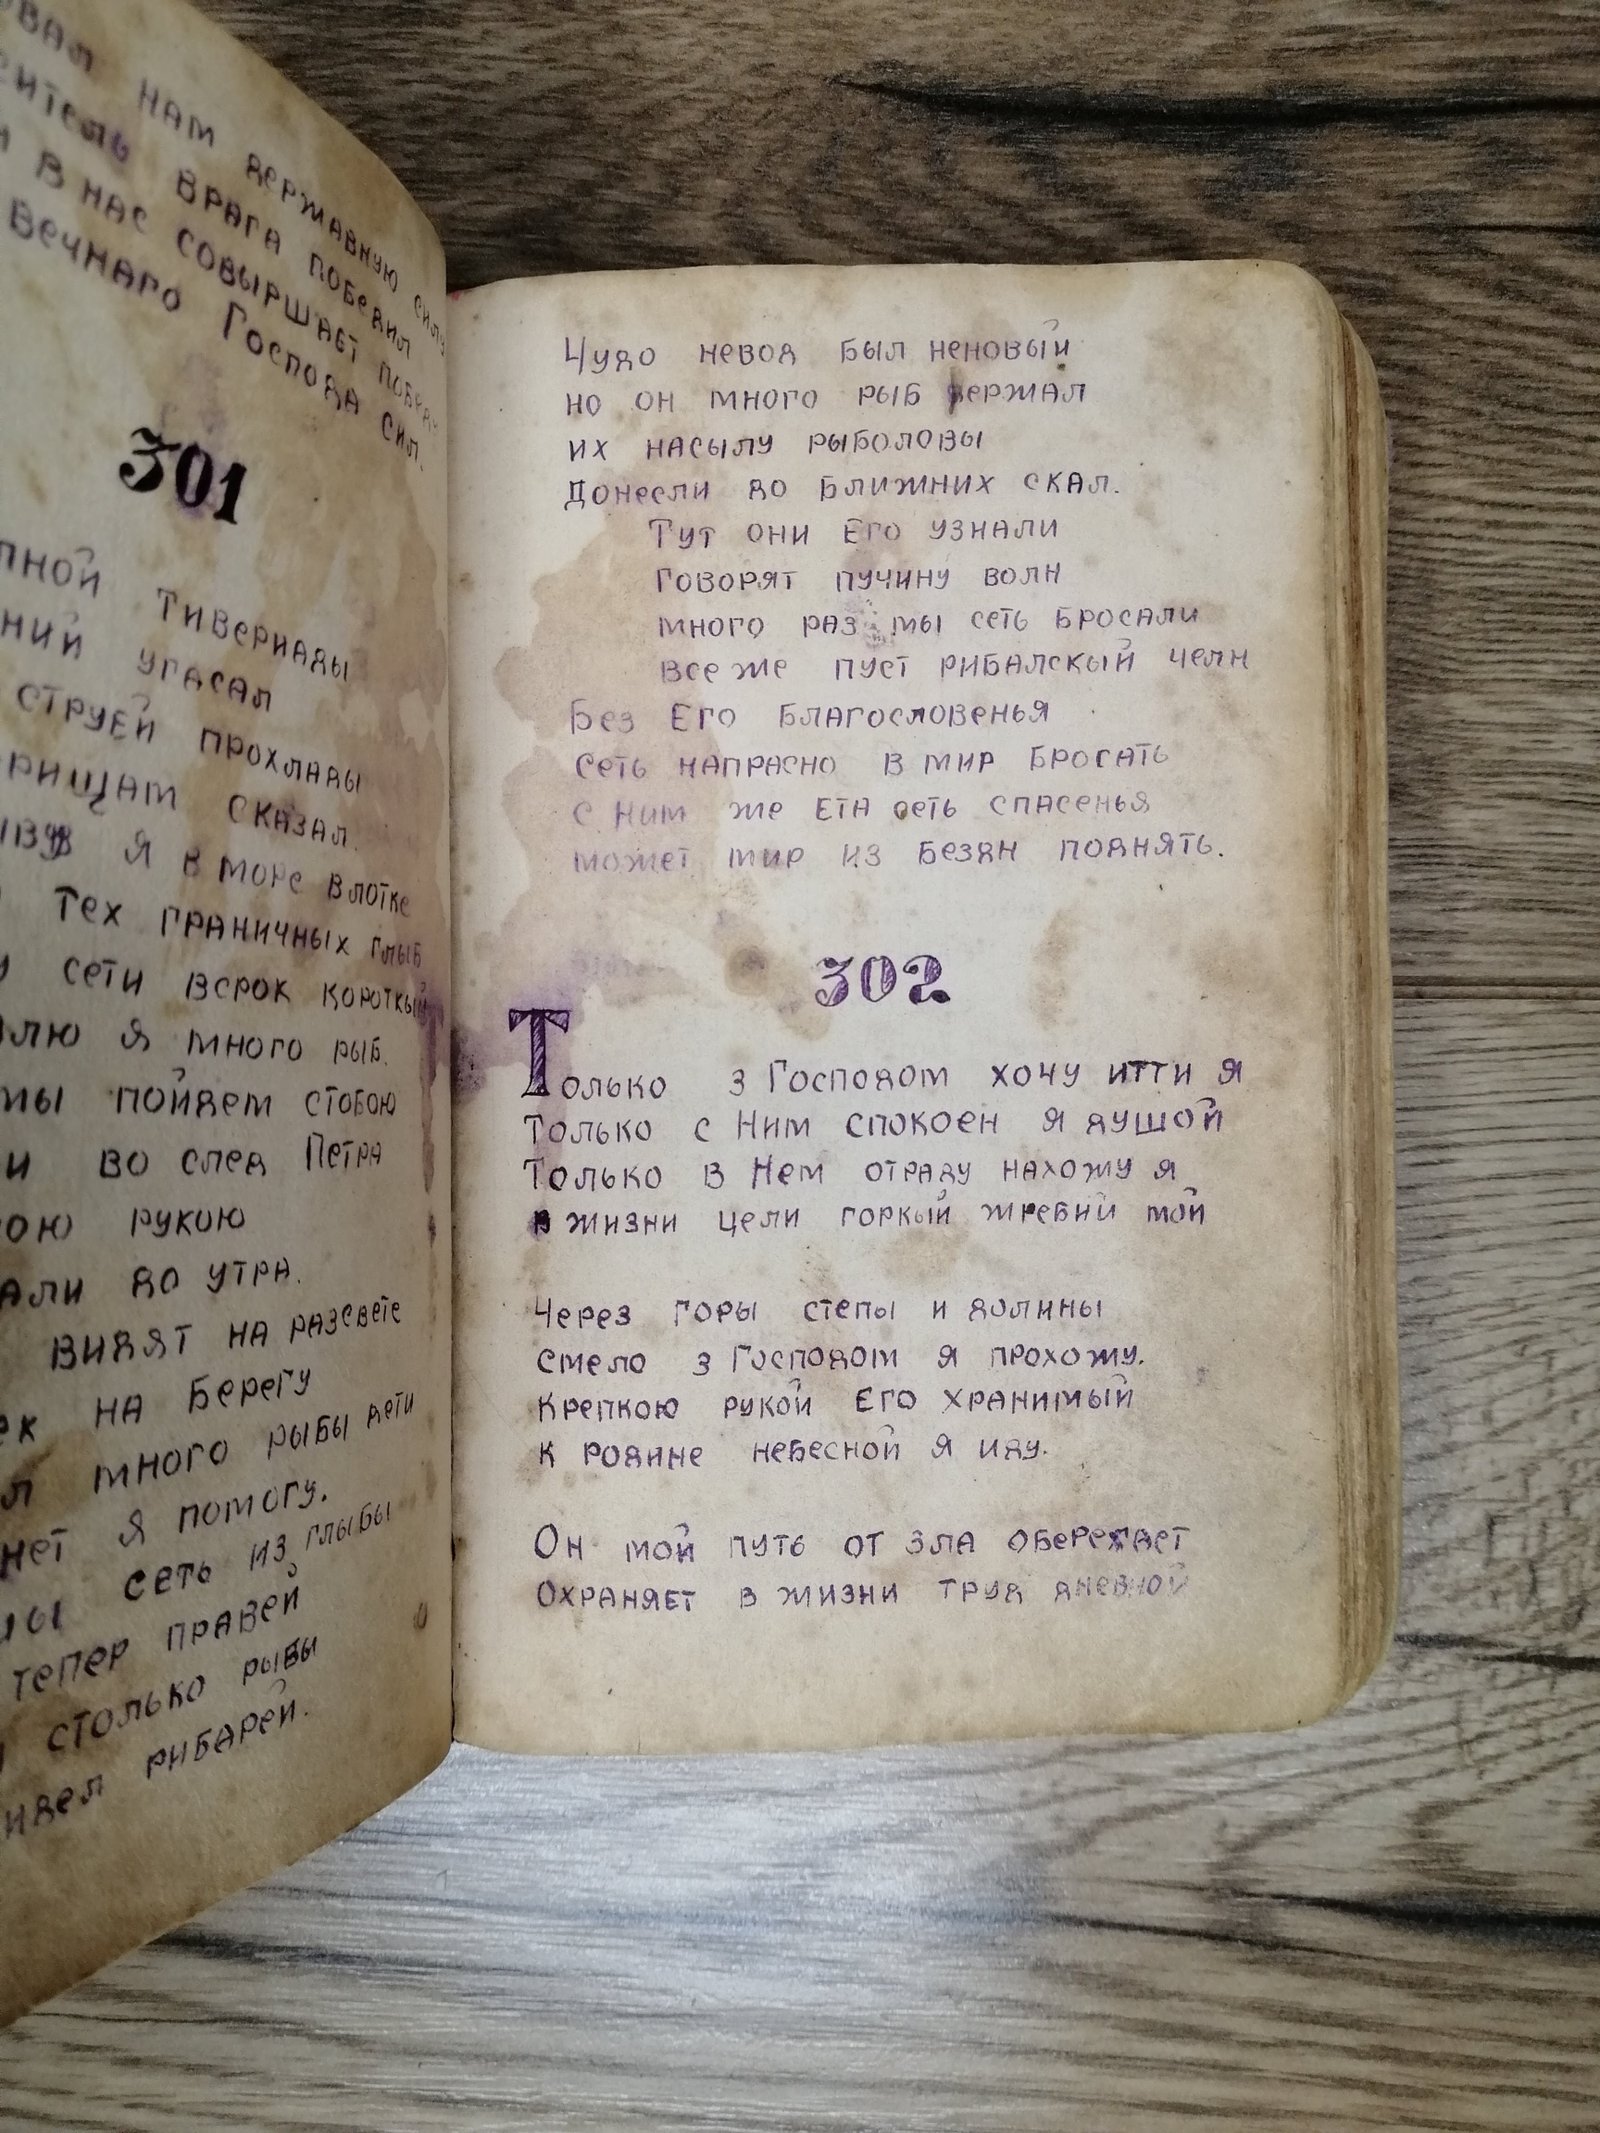 нам державную силу
врага победил
в нас совыршает победу
вечнаго Господа сил.
301
Тивериады
угасал
струей прохлады
сказал.
я в море влотке
тех граничных глыб
сети всрок короткый
я много рыб.
мы пойдем стобою
и во след Петра
рукою
до утра.
видят на разсвете
на берегу
много рыбы дети
нет я помогу.
сеть из глыбы
тепер правей
столько рыбы
рибарей.
Чудо невод был неновый
но он много рыб держал
их насылу рыболовы
Донесли до ближних скал.
Тут они Его узнали
говорят пучину волн
много раз мы сеть бросали
все же пуст рибалскый челн
Без Его благословенья
сеть напрасно в мир бросать
с Ним же ета сеть спасенья
может мир из бездн поднять.
302
Только з Господом хочу итти я
Только с Ним спокоен я душой
Только в Нем отраду нахожу я
в жизни цели горкый жребий мой
Через горы степы и долины
смело з Господом я прохожу.
Крепкою рукой Его хранимый
к родине небесной я иду.
Он мой путь от зла оберегает
Охраняет в жизни труд дневной